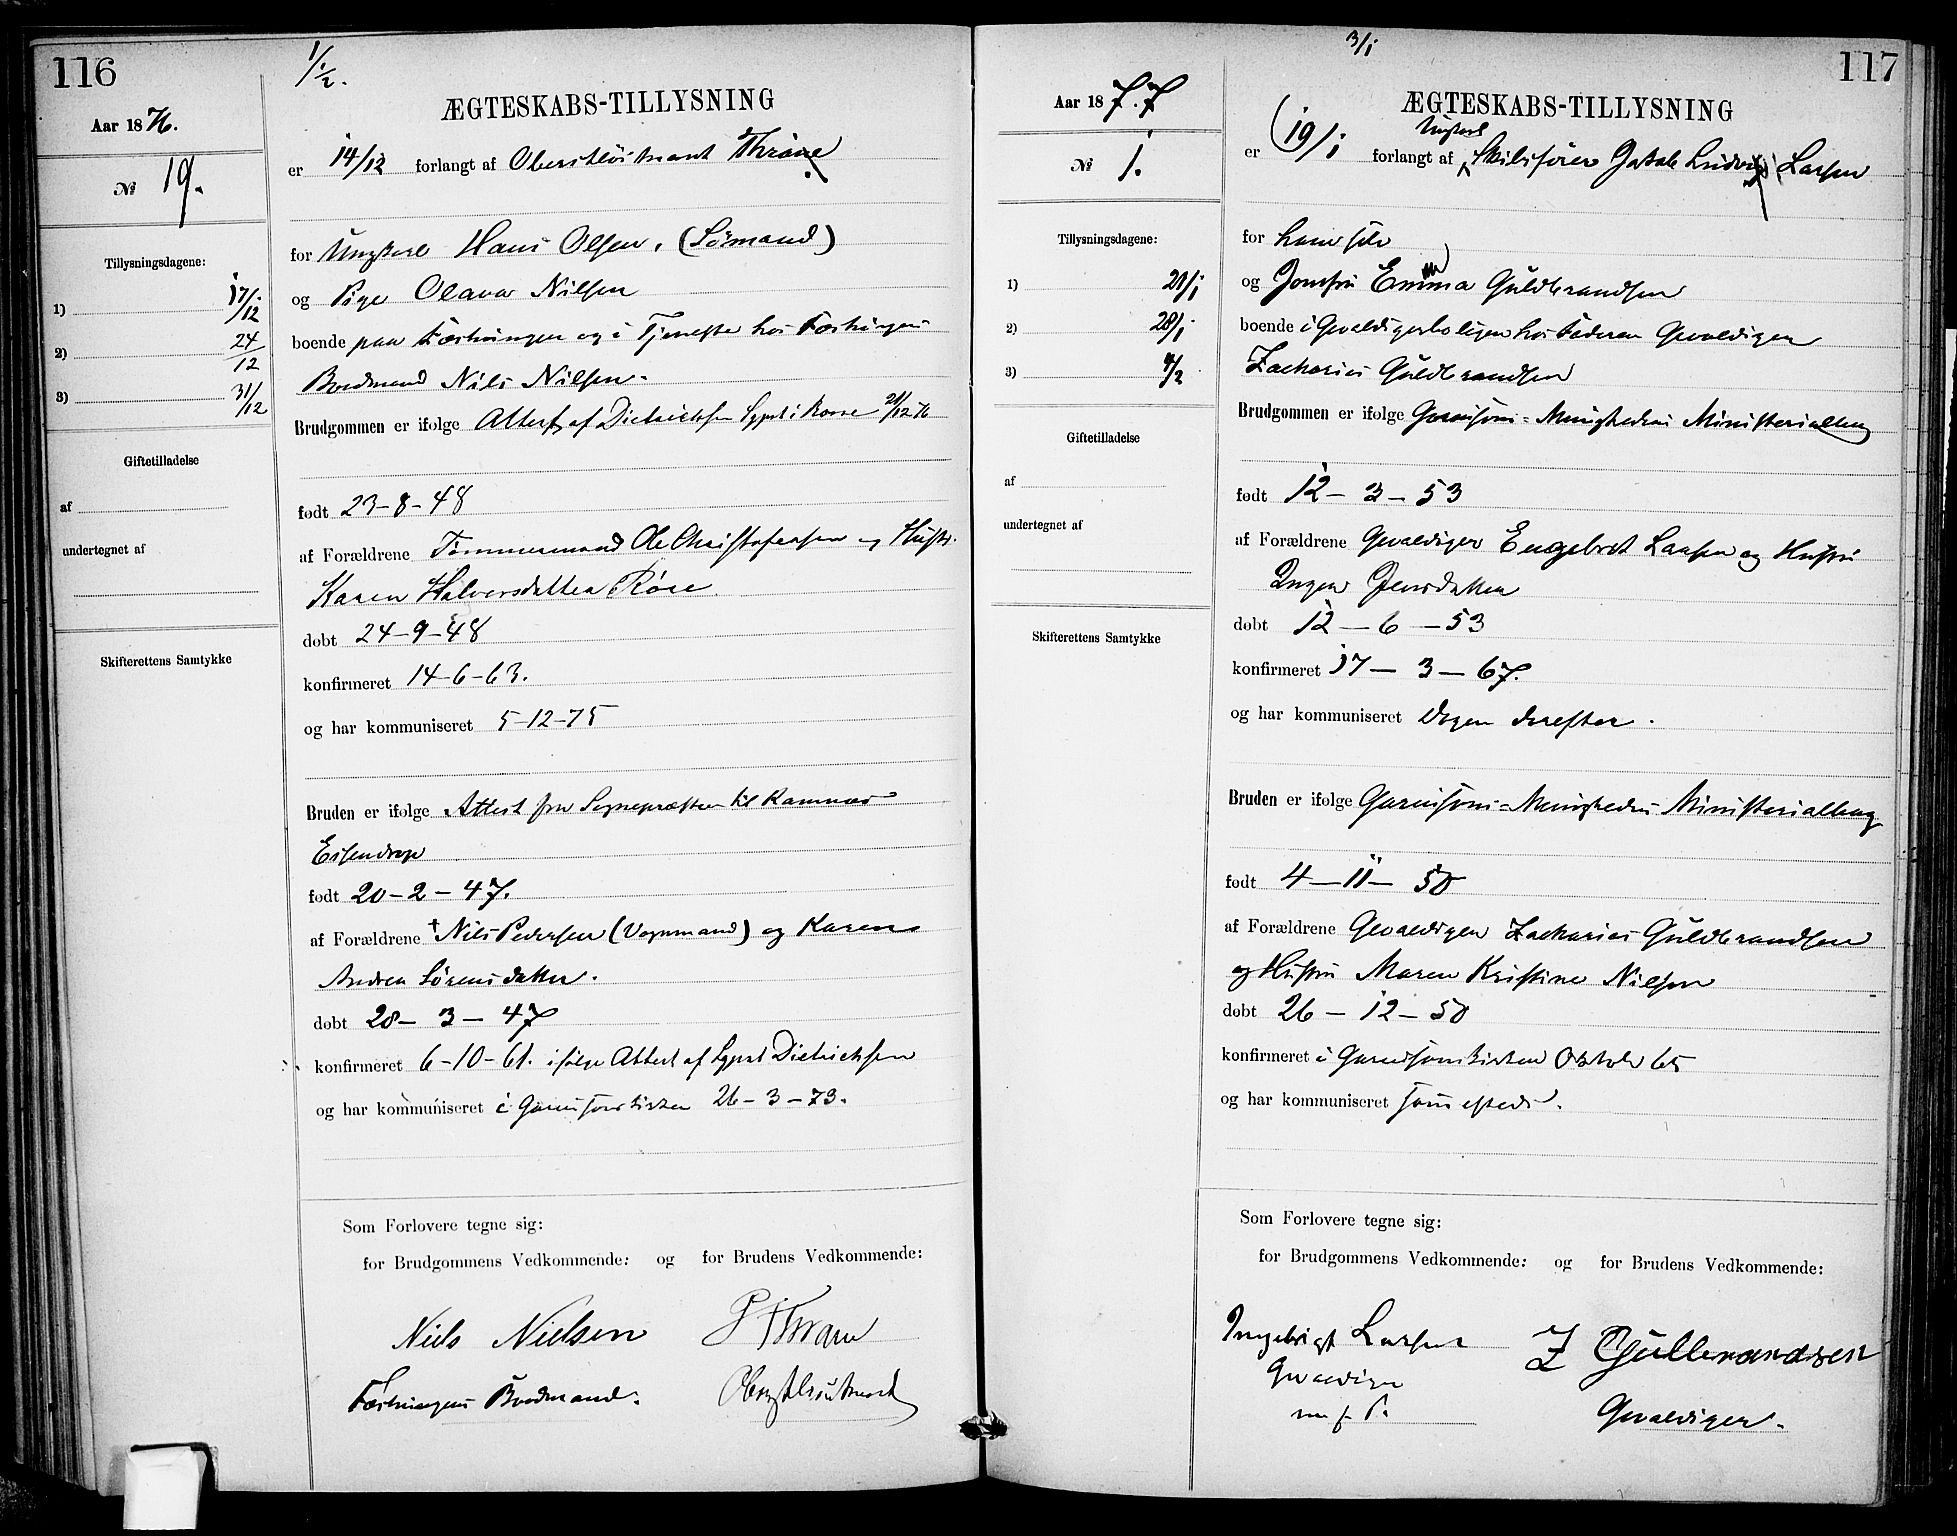 116
1/2.
Aar 1876.
№ 19.
Tillysningsdagene:
1) 17/12
2) 24/12
3) 31/12
Giftetilladelse
af
undertegnet af
Skifterettens Samtykke
ÆGTESKABS-TILLYSNING
er 14/12 forlangt af Oberstløitnant Thrane
for Ungkarl Hans Olsen, (Sømand)
og Pige Olava Nilsen
boende paa Fæstningen og i Tjeneste hos Fæstningens
Brodmand Nils Nilsen.
Brudgommen er ifølge Attest af Dietrichsen 21/12 76
født 23-8-48
af Forældrene Tømmermand Ole Christofersen og Hustr.
Karen Halvorsdatter Røse
døbt 24-9-48
konfirmeret 14-6-63.
og har kommuniseret 5-12-75
Bruden er ifølge Attest fra Sognepræsten til
født 20-2-47.
af Forældrene † Nils Pedersen (Vognmand) og Karen
Andrea Sørensdatter.
døbt 28-3-47
konfirmeret 6-10-61. ifølge Attest af Dietrichsen
og har kommuniseret i Garnisonskirken 26-3-73.
Som Forlovere tegne sig:
for Brudgommens Vedkommende: og for Brudens Vedkommende:
Niels Nielsen P Thrane
Fæstningens Brodmand. Oberstløitnant
117
3/1
Aar 1877
№ 1.
Tillysningsdagene:
1) 21/1
2) 28/1
3) 4/2
Giftetilladelse
af
undertegnet af
Skifterettens Samtykke
ÆGTESKABS-TILLYSNING
Ungkarl
er (19/1 forlangt af Skibsfører Jakob Ludvig Larsen
for ham selv
og Jomfru Emma Guldbrandsen
boende i Gevaldigerboligen hos Faderen Gevaldiger
Zacharias Guldbrandsen
Brudgommen er ifølge Garnisons-Menighedens Ministerialbog
født 12-3-53
af Forældrene Gevaldiger Engebret Larsen og Hustru
Inger Jensdatter
døbt 12-6-53
konfirmeret 17-3-67.
og har kommuniseret Dagen derefter.
Bruden er ifølge Garnisons-Menighedens Ministerialbog
født 4-11-50
af Forældrene Gevaldiger Zacharias Guldbrandsen
og Hustru Maren Kristine Nilsen
døbt 26-12-50
konfirmeret i Garnisonskirken Oktober 65
og har kommuniseret
Som Forlovere tegne sig:
for Brudgommens Vedkommende: og for Brudens Vedkommende:
Ingebrigt Larsen Z Gulbrandsen
Gevaldiger
m. f. P. Gevaldiger.